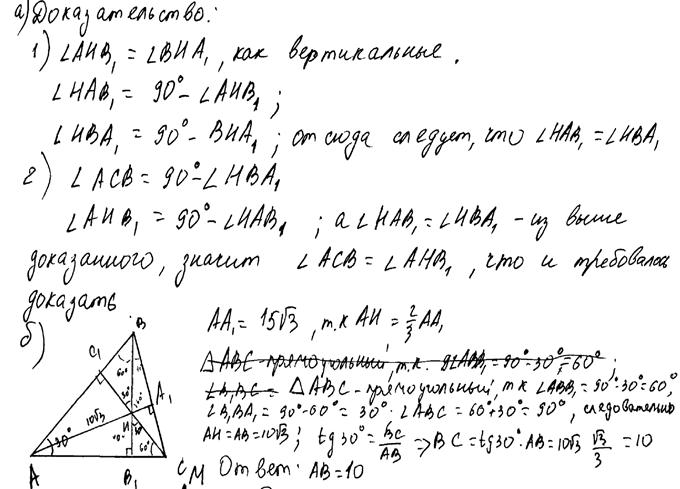 а) Доказательство:
1) ∠AHB₁ = ∠BHA₁, как вертикальные.
∠HAB₁ = 90° - ∠AHB₁;
∠HBA₁ = 90° - BHA₁; отсюда следует, что ∠HAB₁ = ∠HBA₁
2) ∠ACB = 90° - ∠HBA₁
∠AHB₁ = 90° - ∠HAB₁; а ∠HAB₁ = ∠HBA₁ - из выше
доказанного, значит ∠ACB = ∠AHB₁, что и требовалось
доказать
б)
AA₁ = 15√3, т.к AH = 2/3 AA₁
△ABC - прямоугольный, т.к. ∠ABB₁ = 90° - 30° = 60°;
△ABC - прямоугольный, т.к ∠ABB₁ = 90° - 30 = 60°,
∠B₁BA₁ = 90° - 60° = 30°. ∠ABC = 60° + 30° = 90°, следовательно
AH = AB = 10√3; tg30° = BC/AB => BC = tg30° · AB = 10√3 √3/3 = 10
Ответ: AB = 10
B
C₁
A₁
60°
H
10√3
30°
60°
A
B₁
C
M